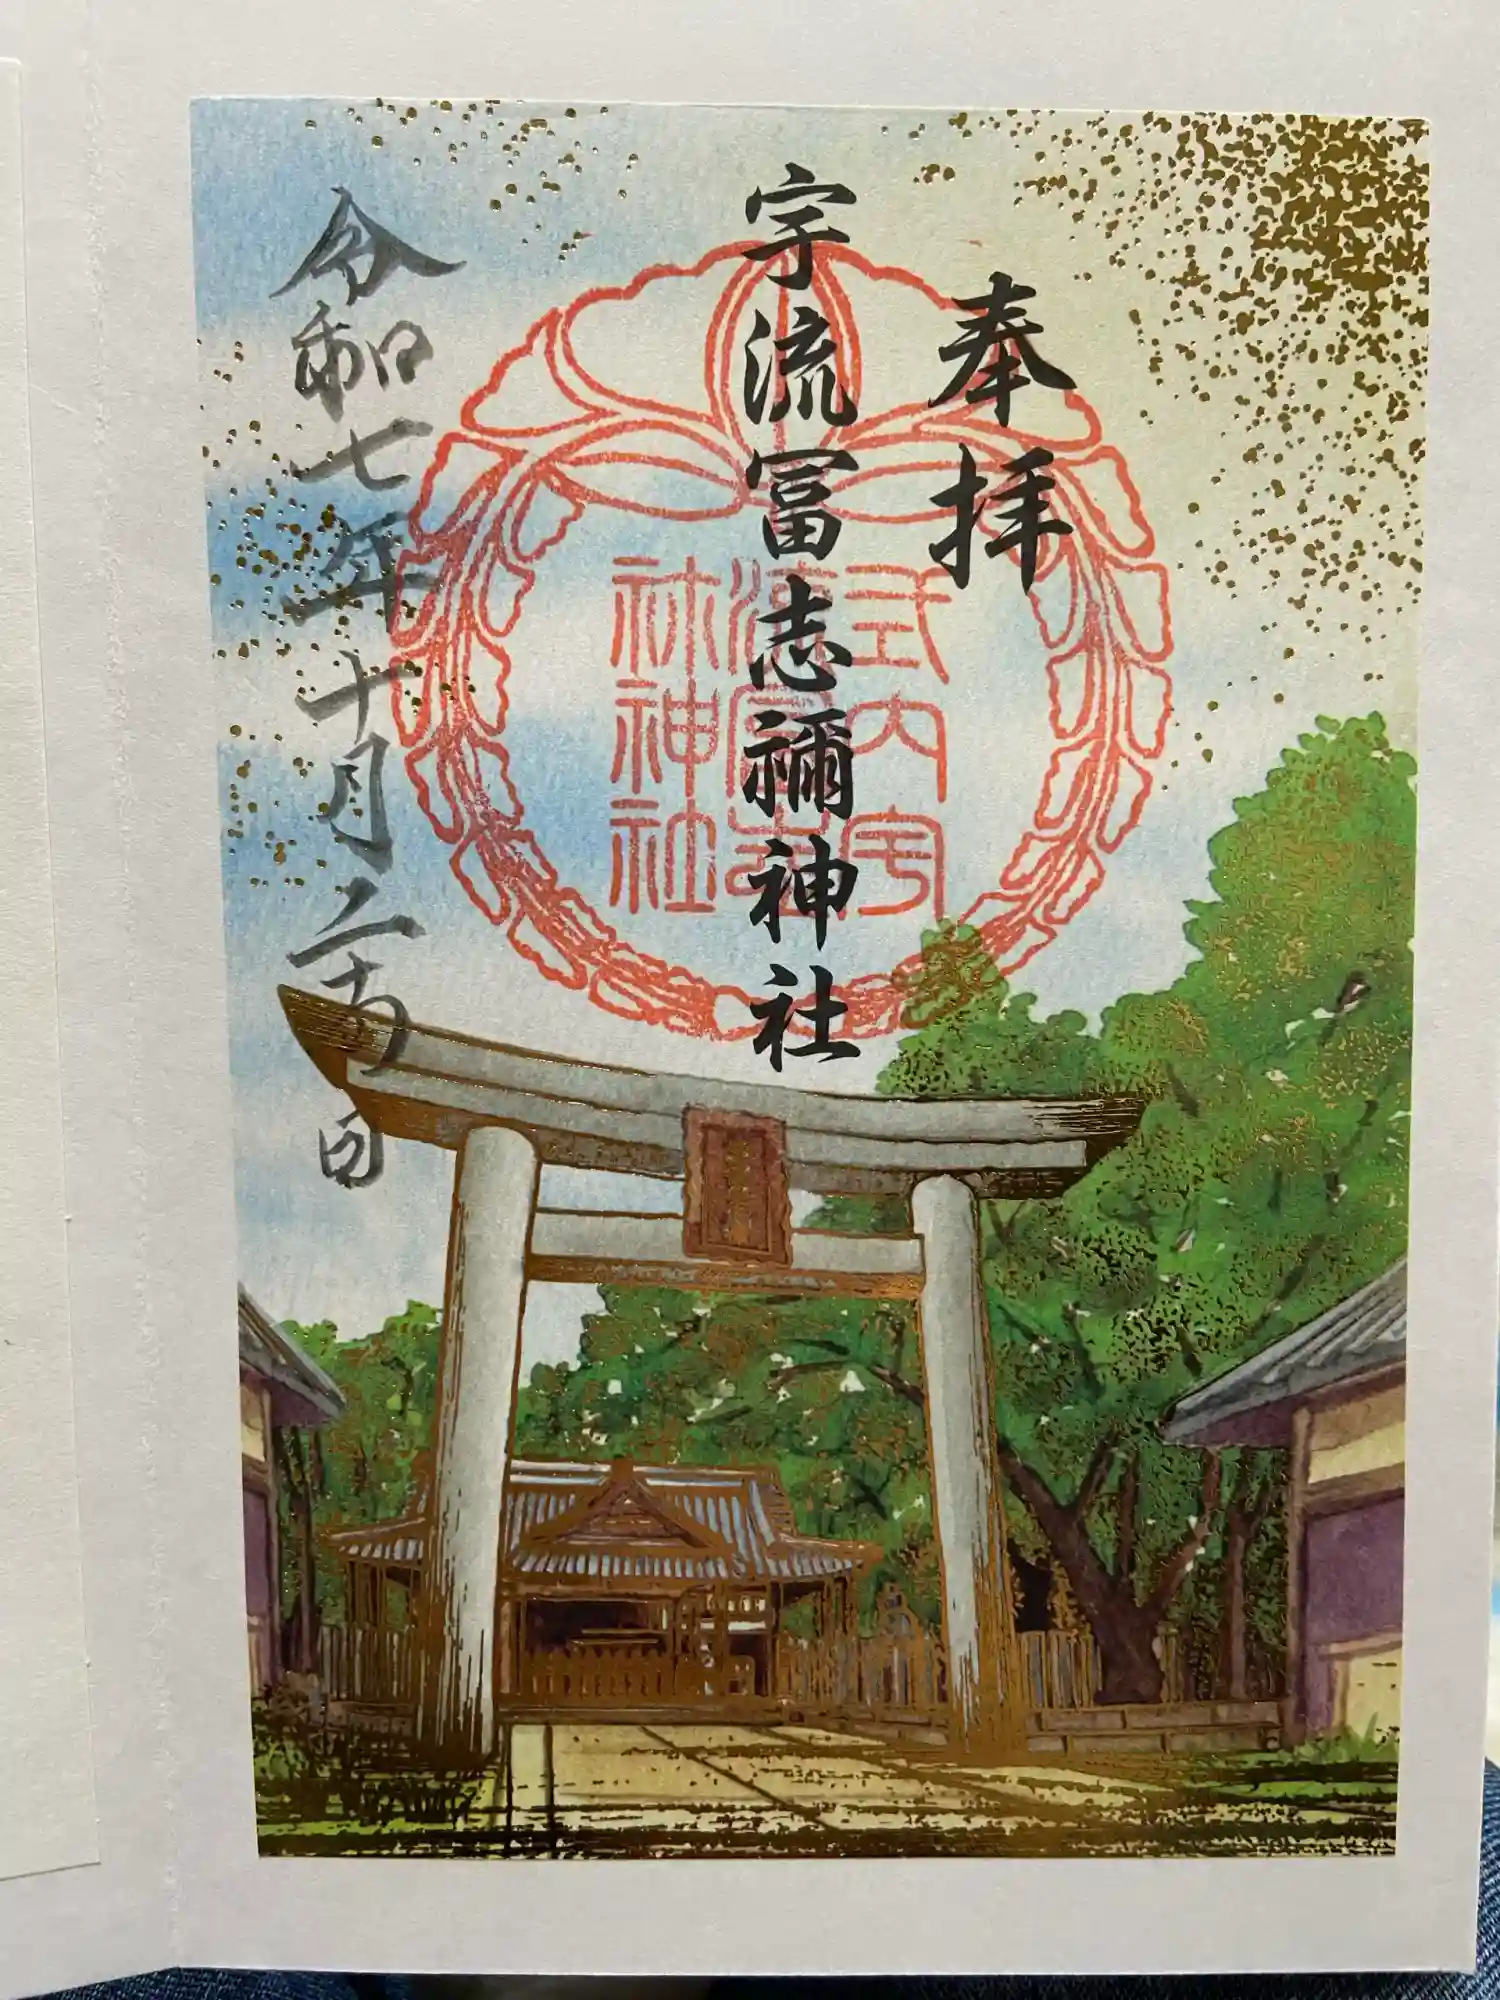 奉拝
宇流冨志禰神社
式内宇
流冨志
神社
令和七年十月二十五日